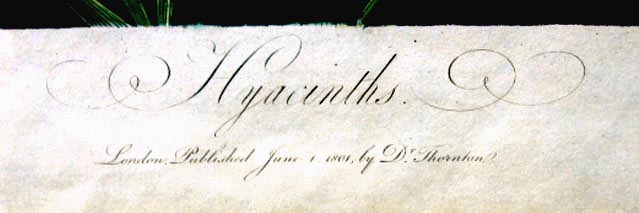 Hyacinths.
London, Published June 1. 1801, by Dr. Thornton.